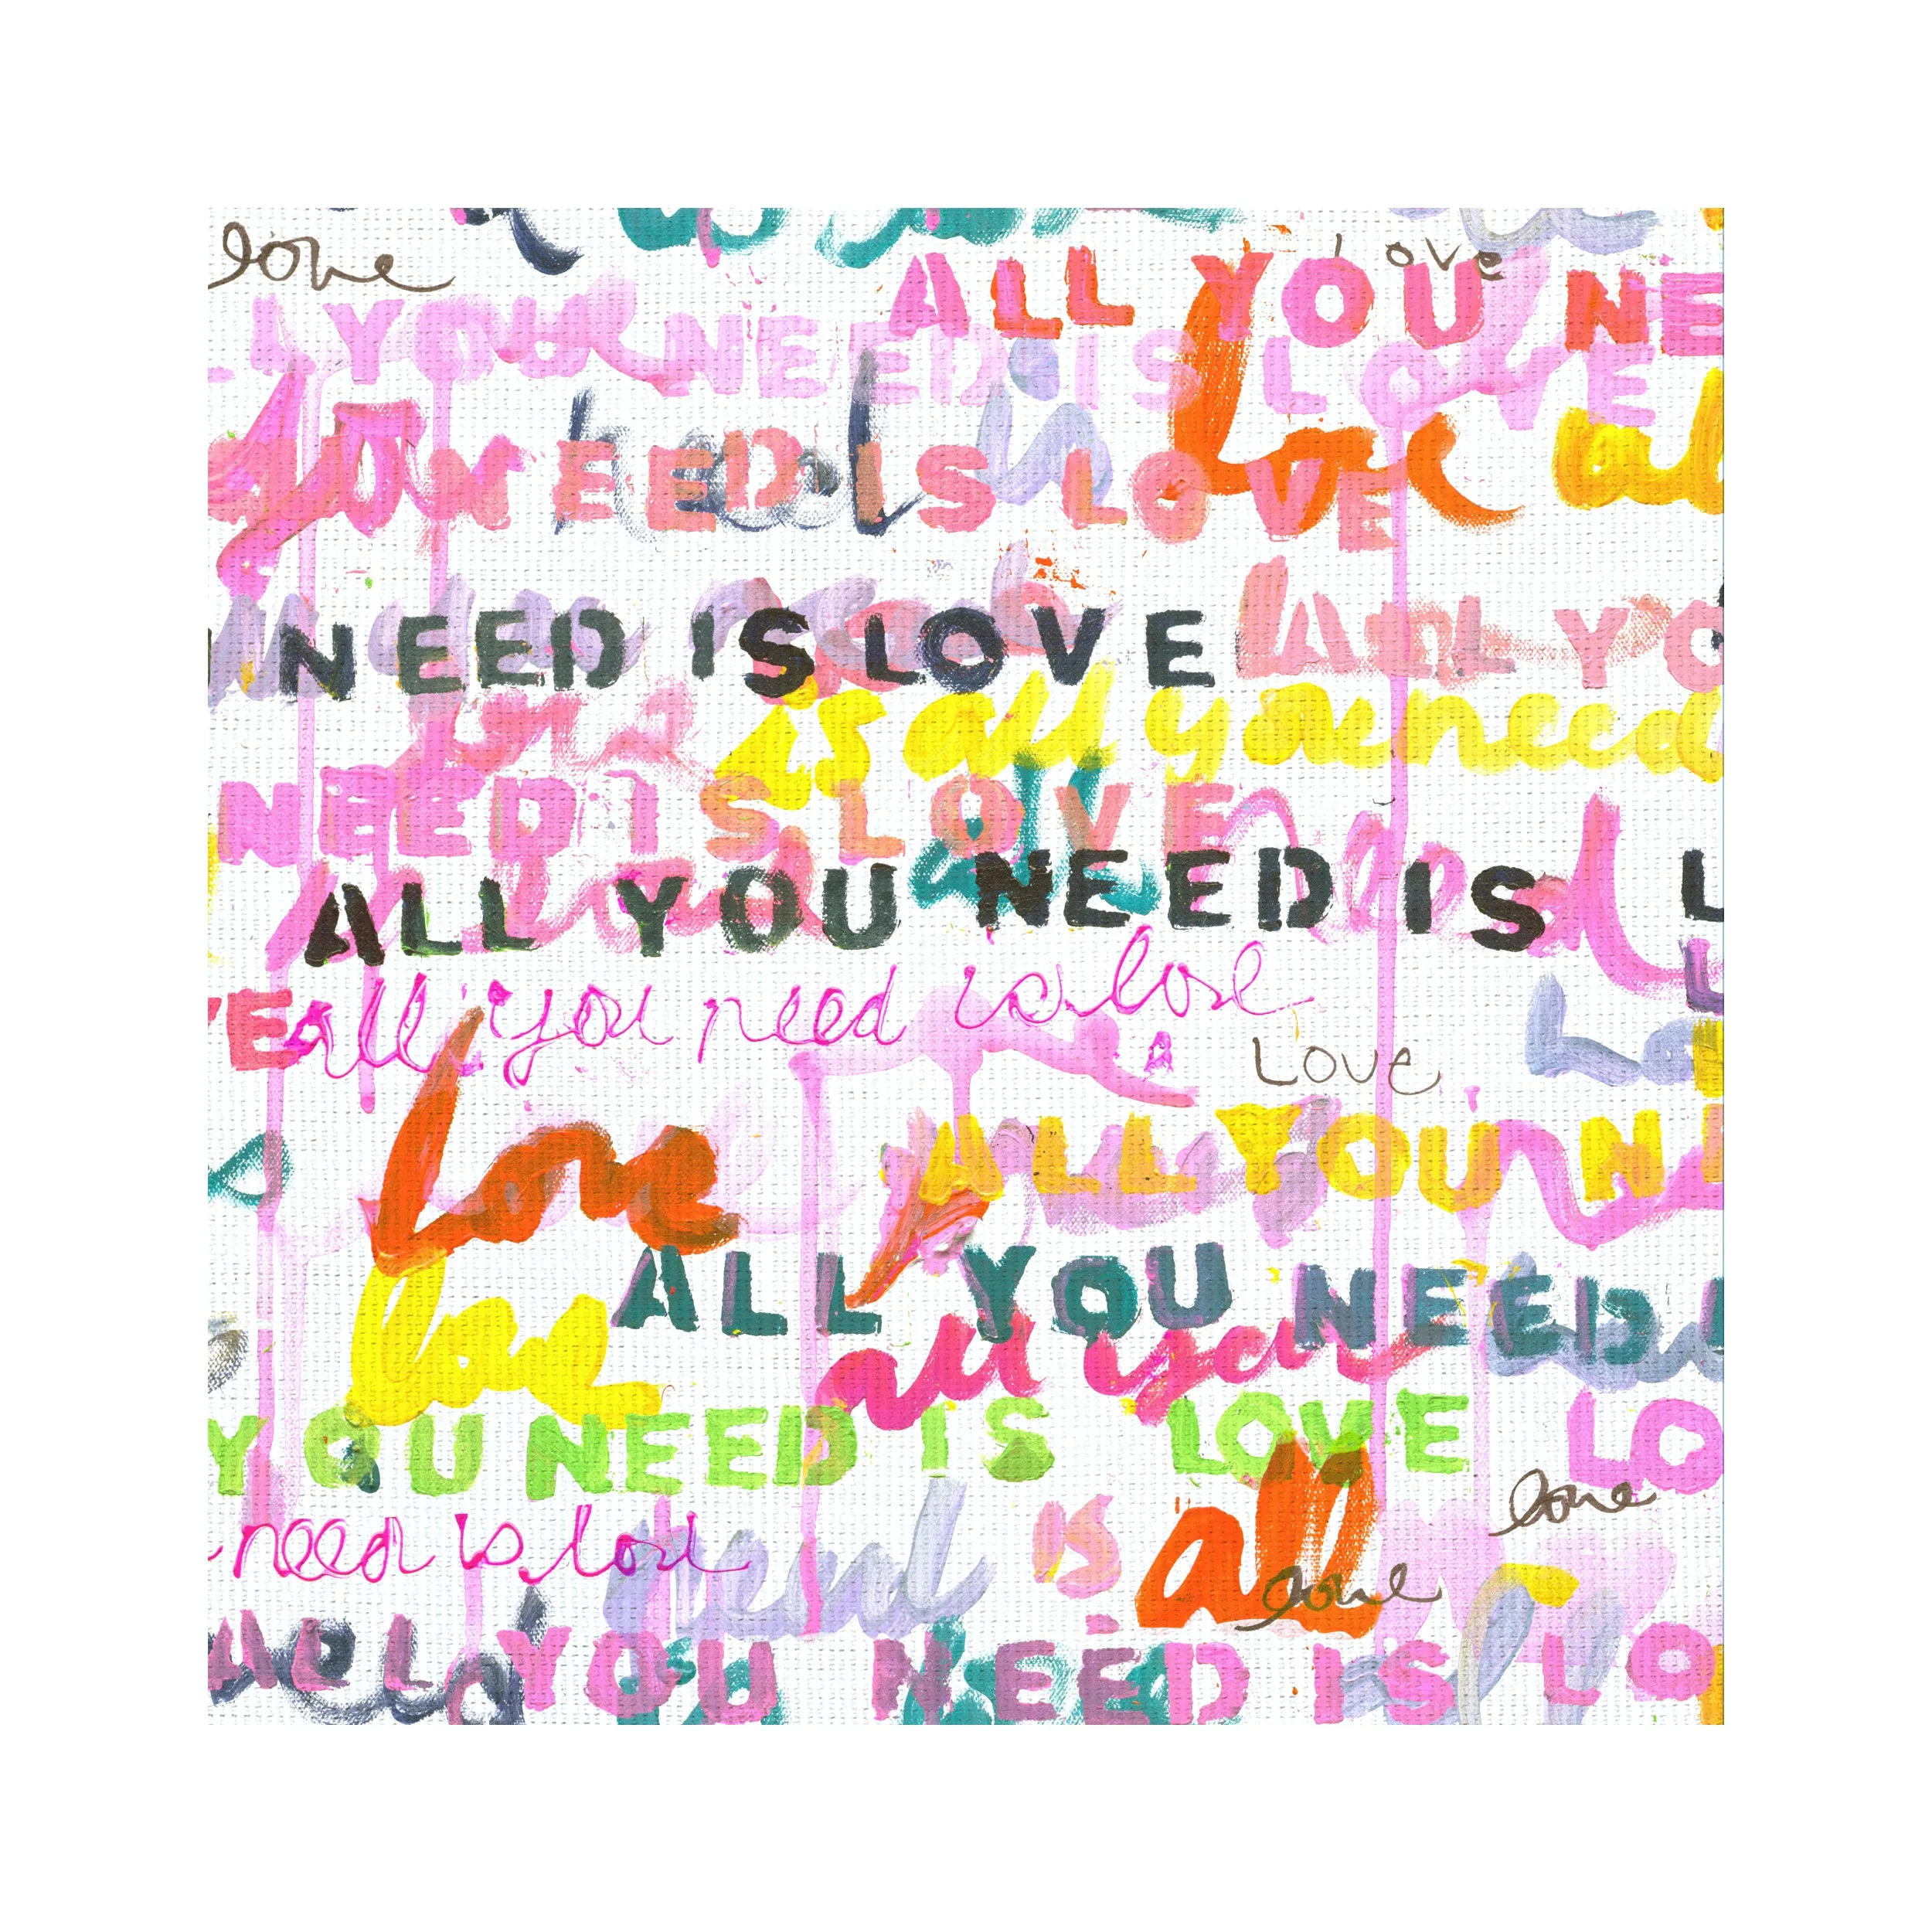 love
love
ALL YOU NE
L YOU NEED IS LOVE
love al
need is
YOU NEED IS LOVE
NEED IS LOVE ALL YO
is all you need
NEED IS LOVE
all
need
ALL YOU NEED IS L
VE all you need is love
LOVE
love
ALL YOU N
ALL YOU NEED I
love all you
YOU NEED IS LOVE LO
love
need is love
need IS all
love
ALL YOU NEED IS LO